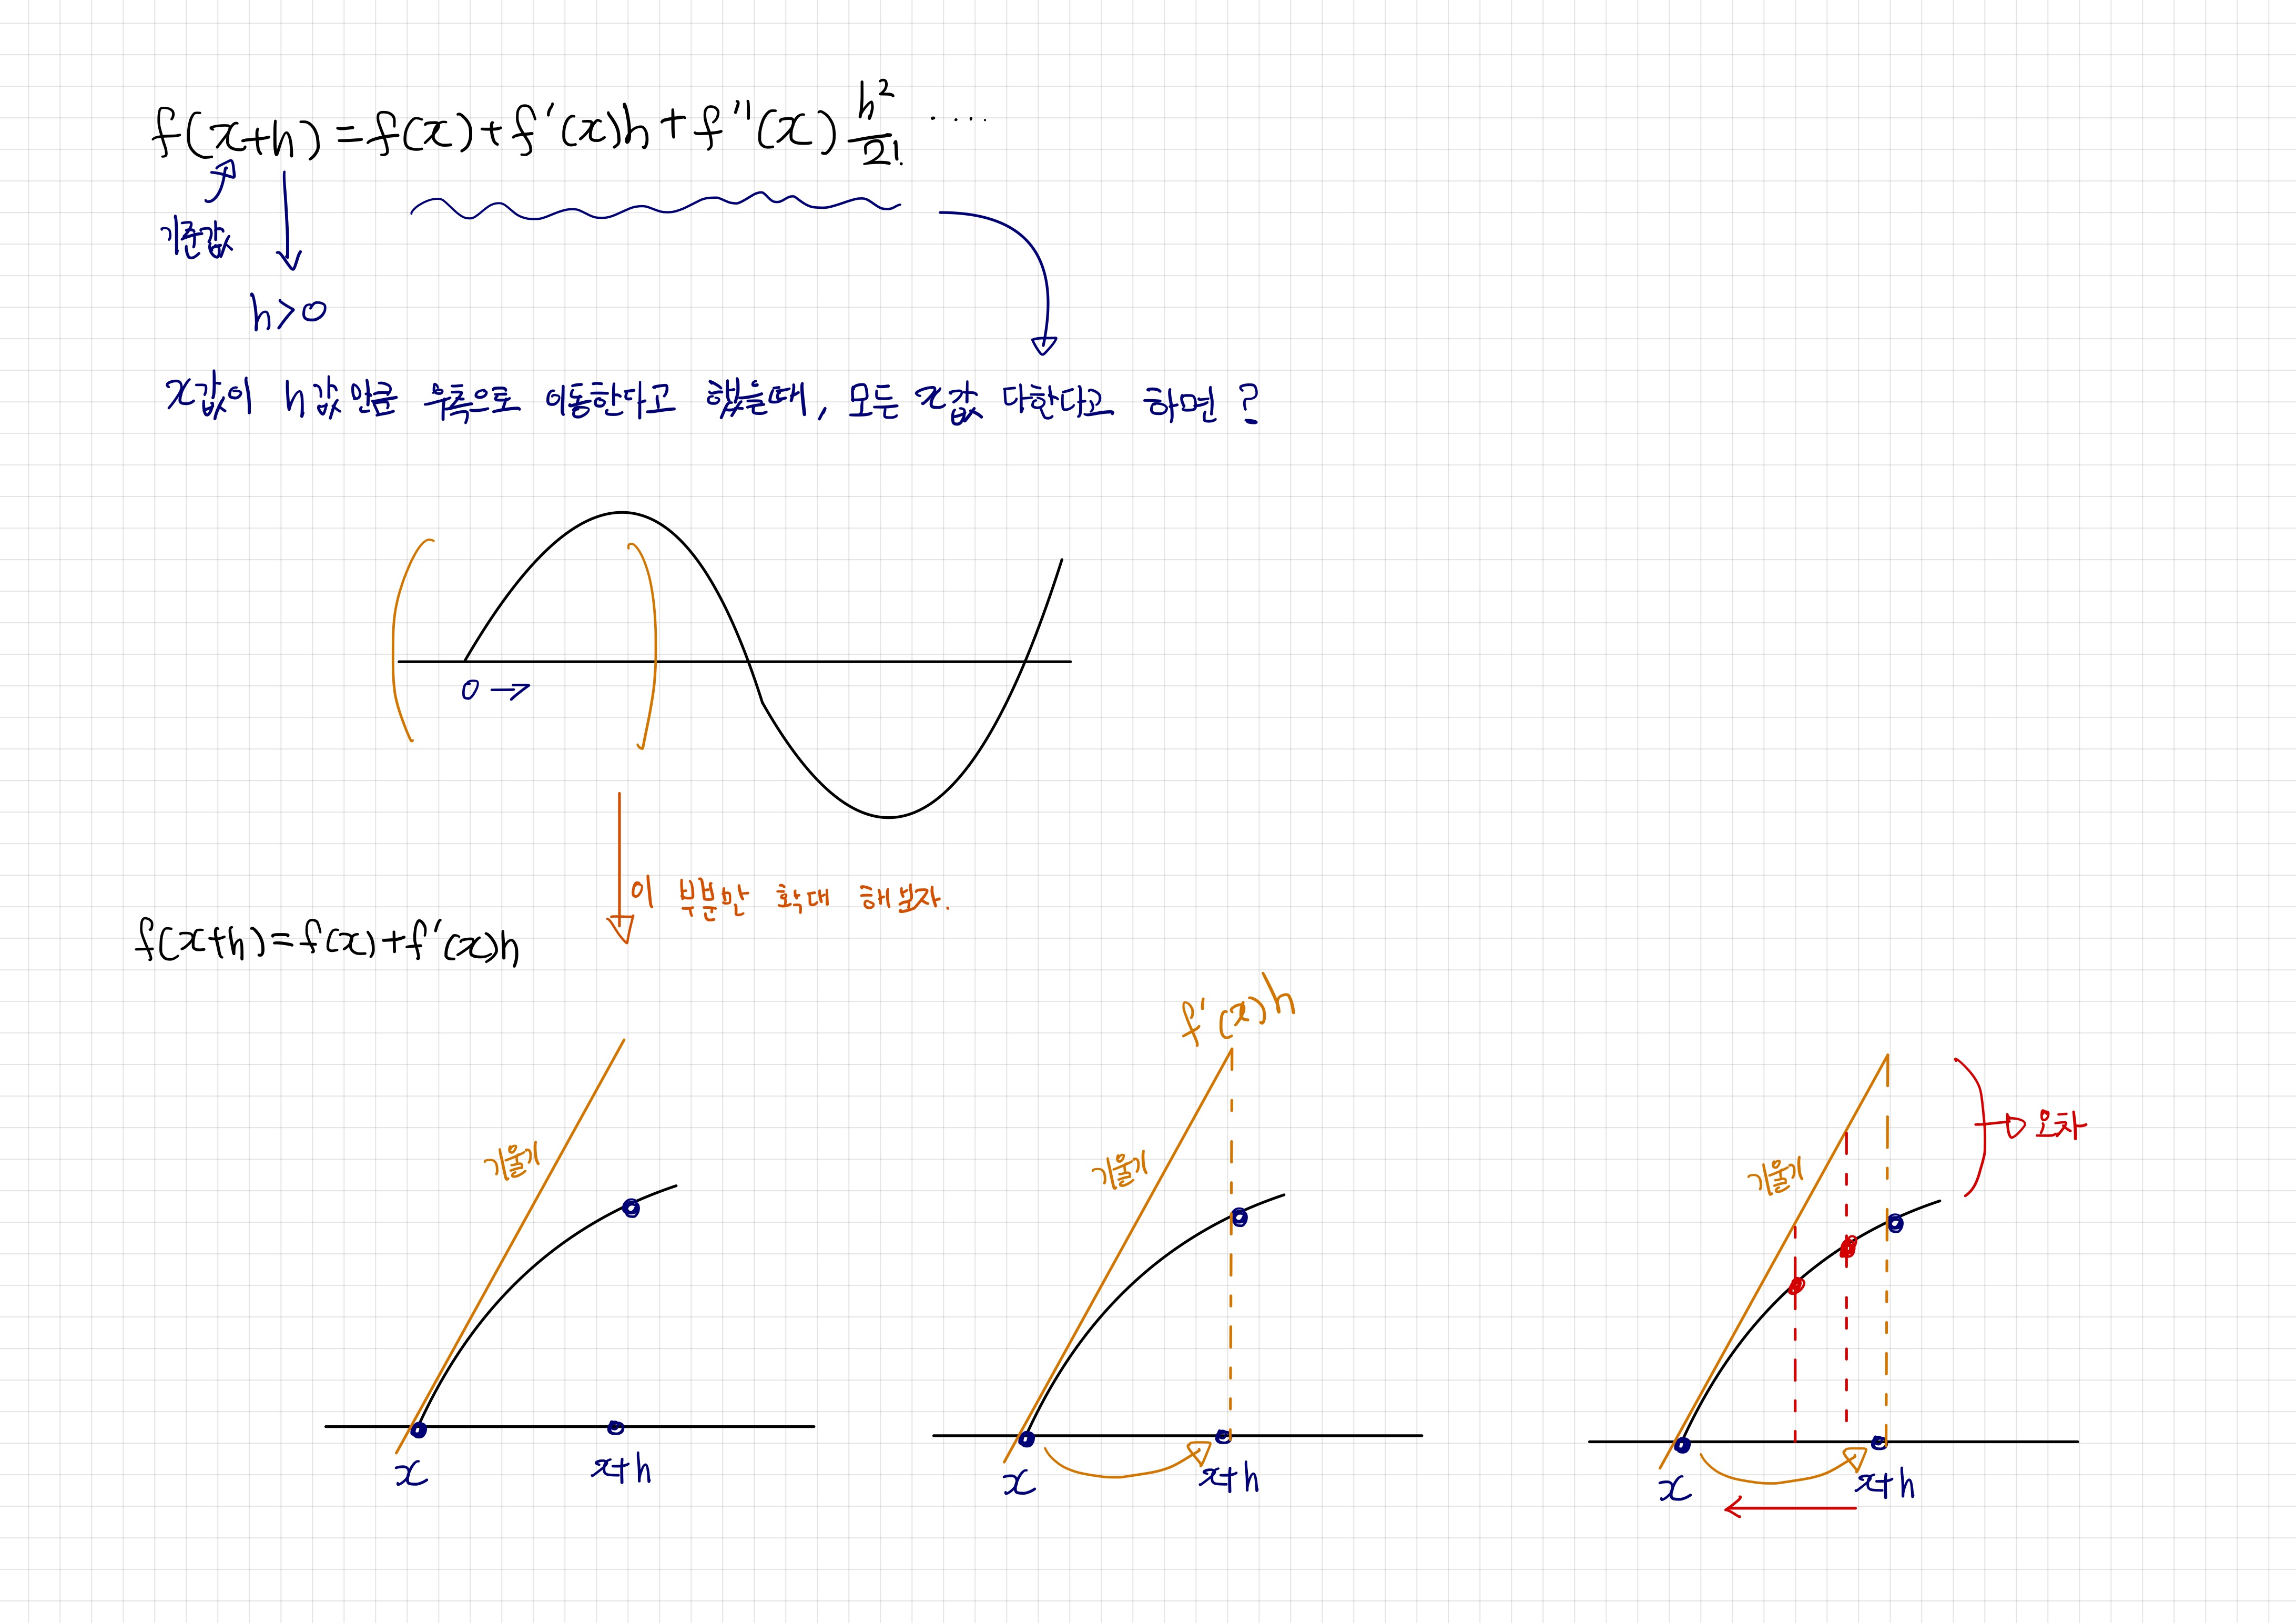 f(x+h)=f(x)+f'(x)h+f''(x)h²/2! ....
기준값
h>0
x값이 h값 만큼 우측으로 이동한다고 했을때, 모두 x값 다한다고 하면?
0→
이 부분만 확대 해보자.
f(x+h)=f(x)+f'(x)h
기울기
x
x+h
f'(x)h
기울기
x
x+h
기울기
오차
x
x+h